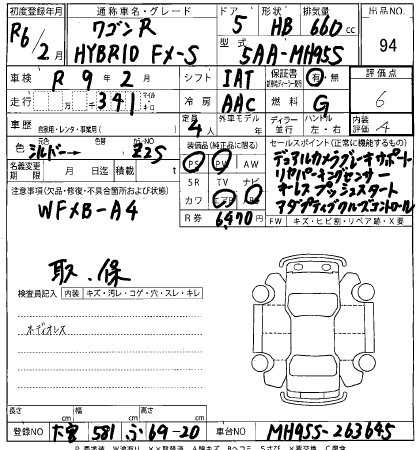 初度登録年月 通称車名・グレード ドア 形状 排気量 出品NO.
R6/2月 ワゴンR HYBRID FX-S 5 HB 660cc 94
型式 5AA-MH95S
車検 R 9年 2月 シフト IAT 保証書 有・無 評価点
走行 341 マイル キロ 冷房 AAC 燃料 G 6
車歴 自家用・レンタ・事業用( ) 定員 4人 外車モデル 年 ディーラー 並行 ハンドル 左・右 内装評価 4
色 元色 シルバー 色替 カラーNO Z2S
装備品(純正品に限る) セールスポイント(正常に機能するもの)
名義変更期限 月 日迄 積載 t
PS PW AW
SR TV ナビ
カワ エアB ABS
R券 6,470円
デュアルカメラブレーキサポート
リヤパーキングセンサー
キーレスプッシュスタート
アダプティブクルーズコントロール
注意事項(欠品・修復・不具合箇所および状態)
WFXB-A4
FW キズ・ヒビ割・リペア跡・X要
取・保
検査員記入 内装 キズ・汚レ・コゲ・穴・スレ・キレ
オーディオレス
長さ cm 幅 cm 高さ cm
登録NO 大宮 581 ぶ 69-20 車台NO MH95S-263645